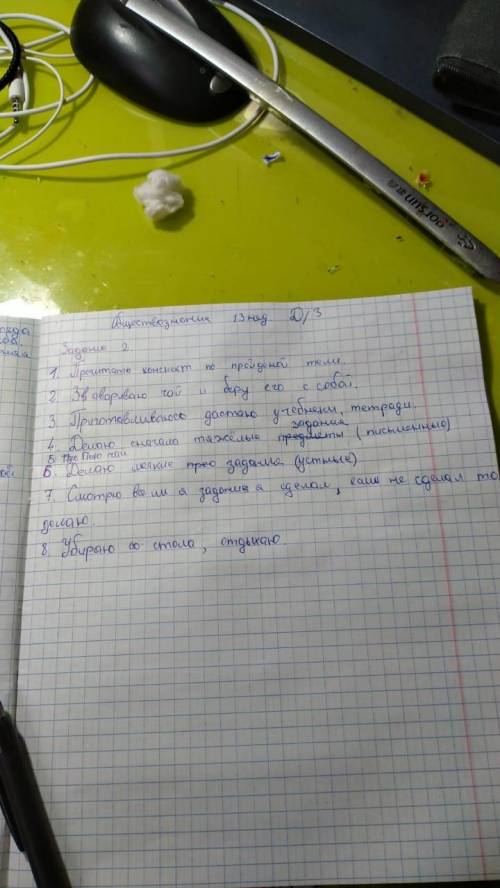 Обществознание 13 нед Д/З
Задание 2
1. Прочитаю конспект по пройденой теме.
2. Завариваю чай и беру его с собой.
3. Приготавливаюсь достаю учебники, тетради.
задания
4. Делаю сначало тяжёлые предметы (письменные)
5. Пью чай
6. Делаю легкие задания (устные)
7. Смотрю все ли я задания я сделал, если не сделал то
делаю.
8. Убираю со стола, отдыхаю.